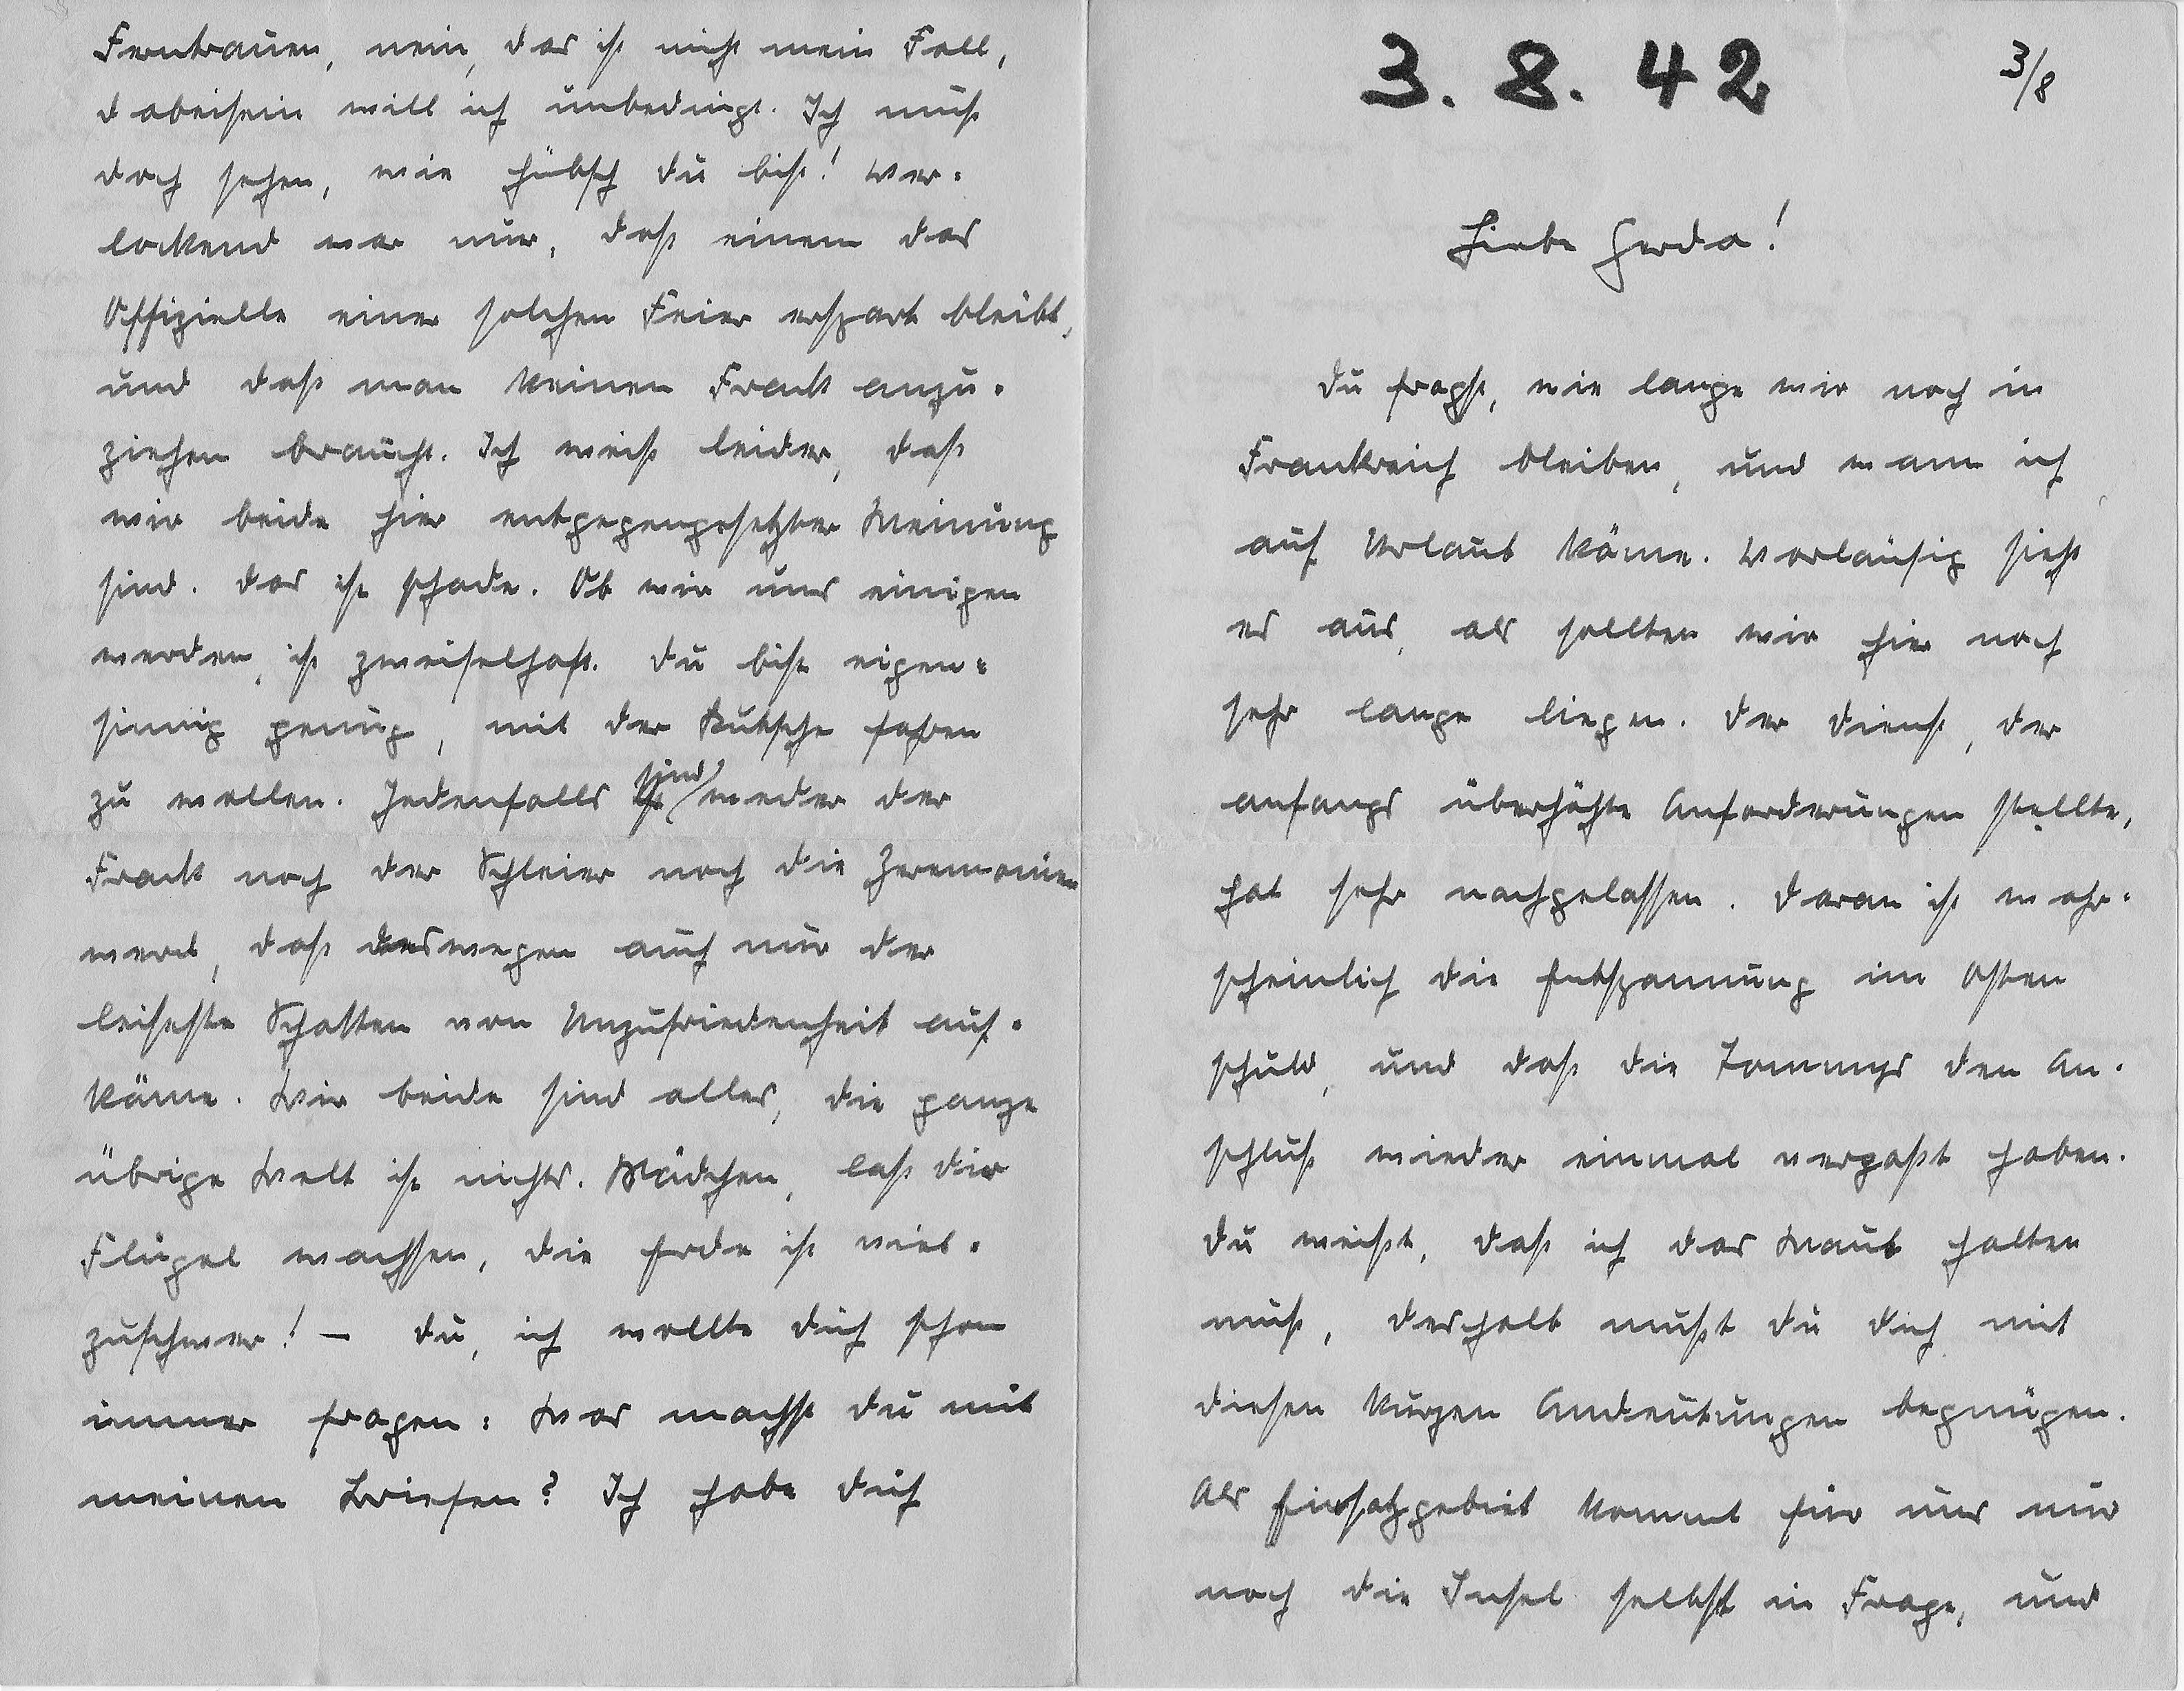 Ferntrauen, nein, das ist nicht mein Fall,
dabeisein will ich unbedingt. Ich muß
doch sehen, wie hübsch du bist! Ver-
lockend war nur, daß einem das
Offizielle einer solchen Feier erspart bleibt,
und daß man keinen Frack anzu-
ziehen braucht. Ich weiß leider, daß
wir beide hier entgegengesetzter Meinung
sind. Das ist schade. Ob wir uns einigen
werden, ist zweifelhaft. Du bist eigen-
sinnig genug, mit der Kutsche fahren
zu wollen. Jedenfalls sind weder der
Frack noch der Schleier noch die Zeremonien
wert, daß deswegen auch nur der
leiseste Schatten von Unzufriedenheit auf-
käme. Wir beide sind alles, die ganze
übrige Welt ist nichts. Mädchen, laß dir
Flügel wachsen, die Erde ist viel-
zuschwer! – Du, ich wollte dich schon
immer fragen: Was machst du mit
meinen Briefen? Ich habe dich
3. 8. 42
3/8
Liebe Gerda!
Du fragst, wie lange wir noch in
Frankreich bleiben, und wann ich
auf Urlaub käme. Vorläufig sieht
es aus, als sollten wir hier noch
sehr lange liegen. Der Dienst, der
anfangs überhöhte Anforderungen stellte,
hat sehr nachgelassen. Daran ist wahr-
scheinlich die Entspannung im Osten
schuld, und daß die Tommys den An-
schluß wieder einmal verpaßt haben.
Du weißt, daß ich das Maul halten
muß, deshalb mußt du dich mit
diesen kurzen Andeutungen begnügen.
Als Einsatzgebiet kommt für uns nur
noch die Insel selbst in Frage, und